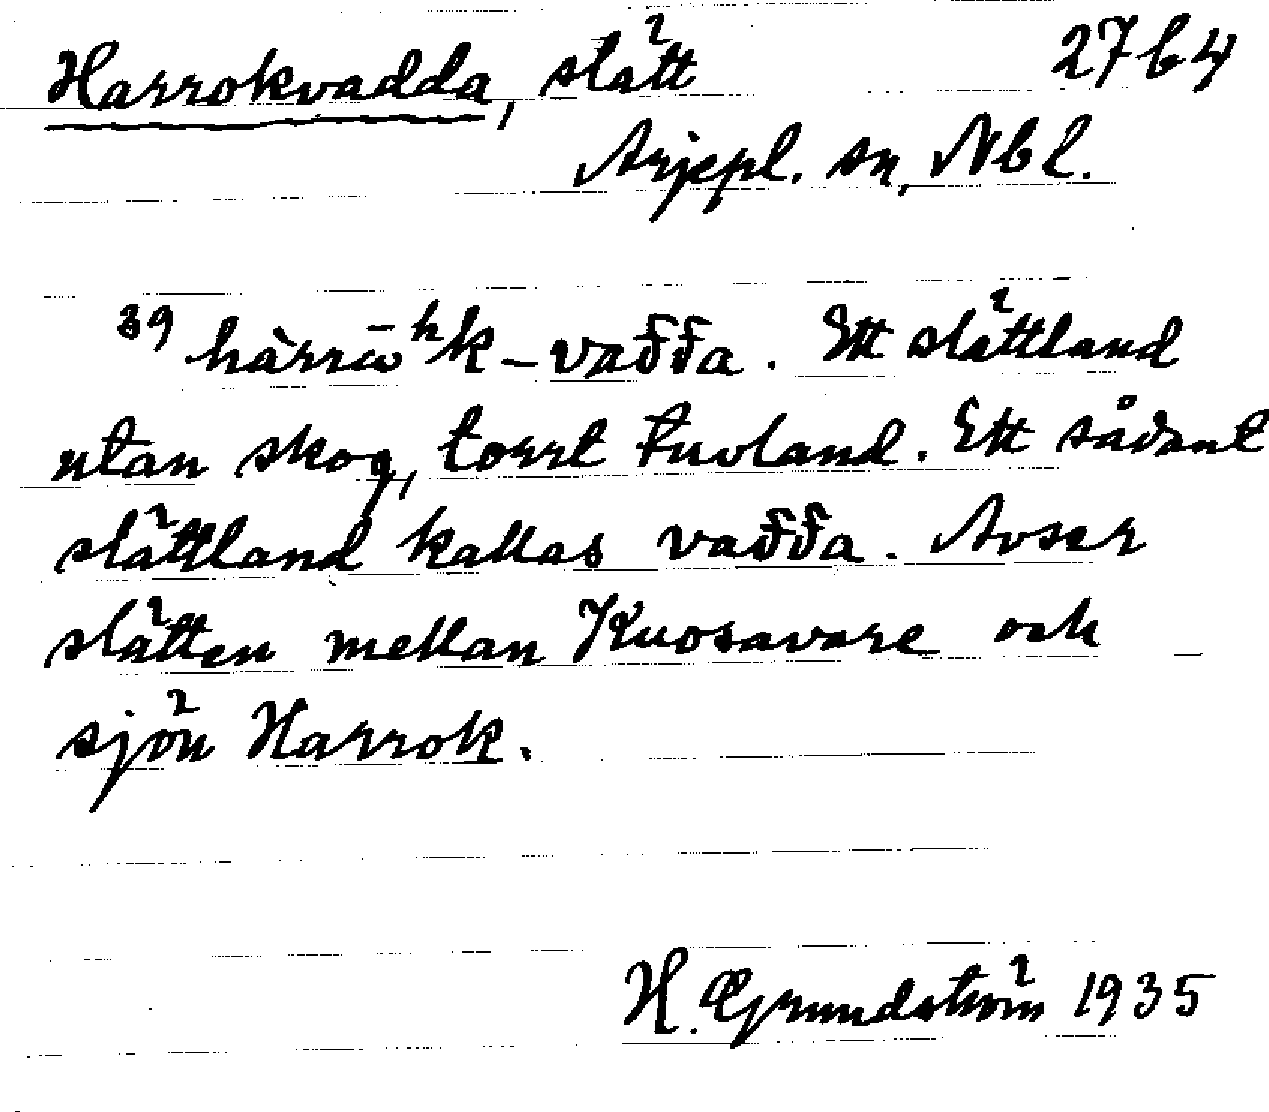 Harrokvadda, slätt 27b4
Arjepl. sn, Nbl.
39 hàrrω̄ʰk-vaδδa. Ett slättland
utan skog, torrt tuvland. Ett sådant
slättland kallas vaδδa. Avser
slätten mellan Kuosavare och
sjön Harrok.
H. Grundström 1935